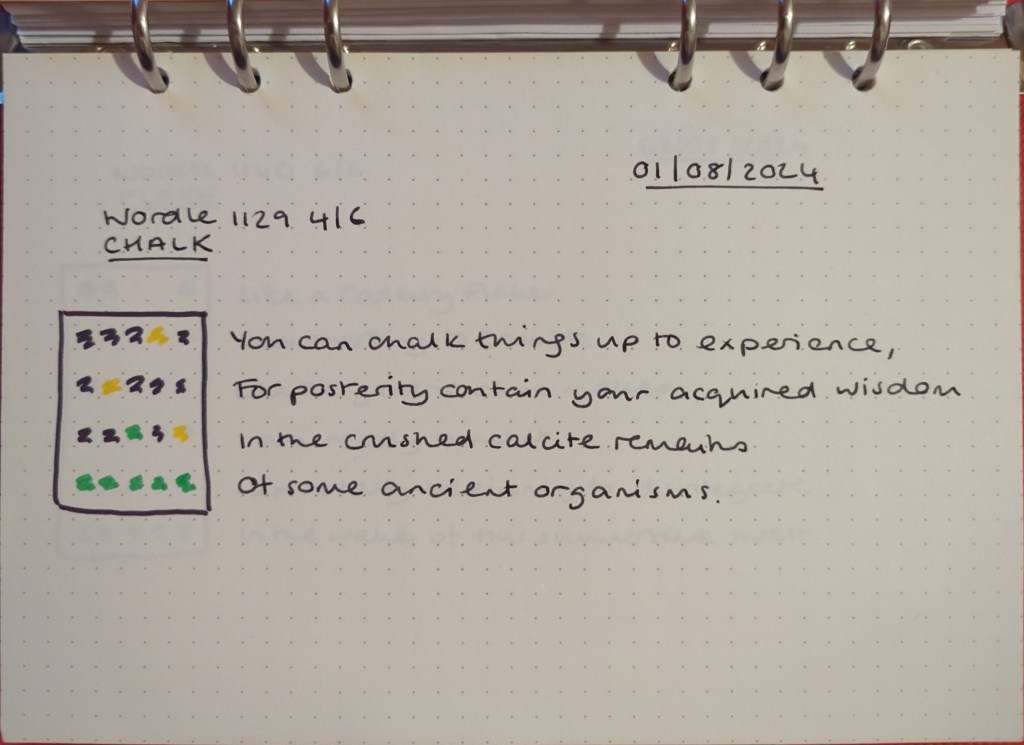 01/08/2024
Wordle 1129 4/6
CHALK
You can chalk things up to experience,
For posterity contain your acquired wisdom
In the crushed calcite remains
Of some ancient organisms.